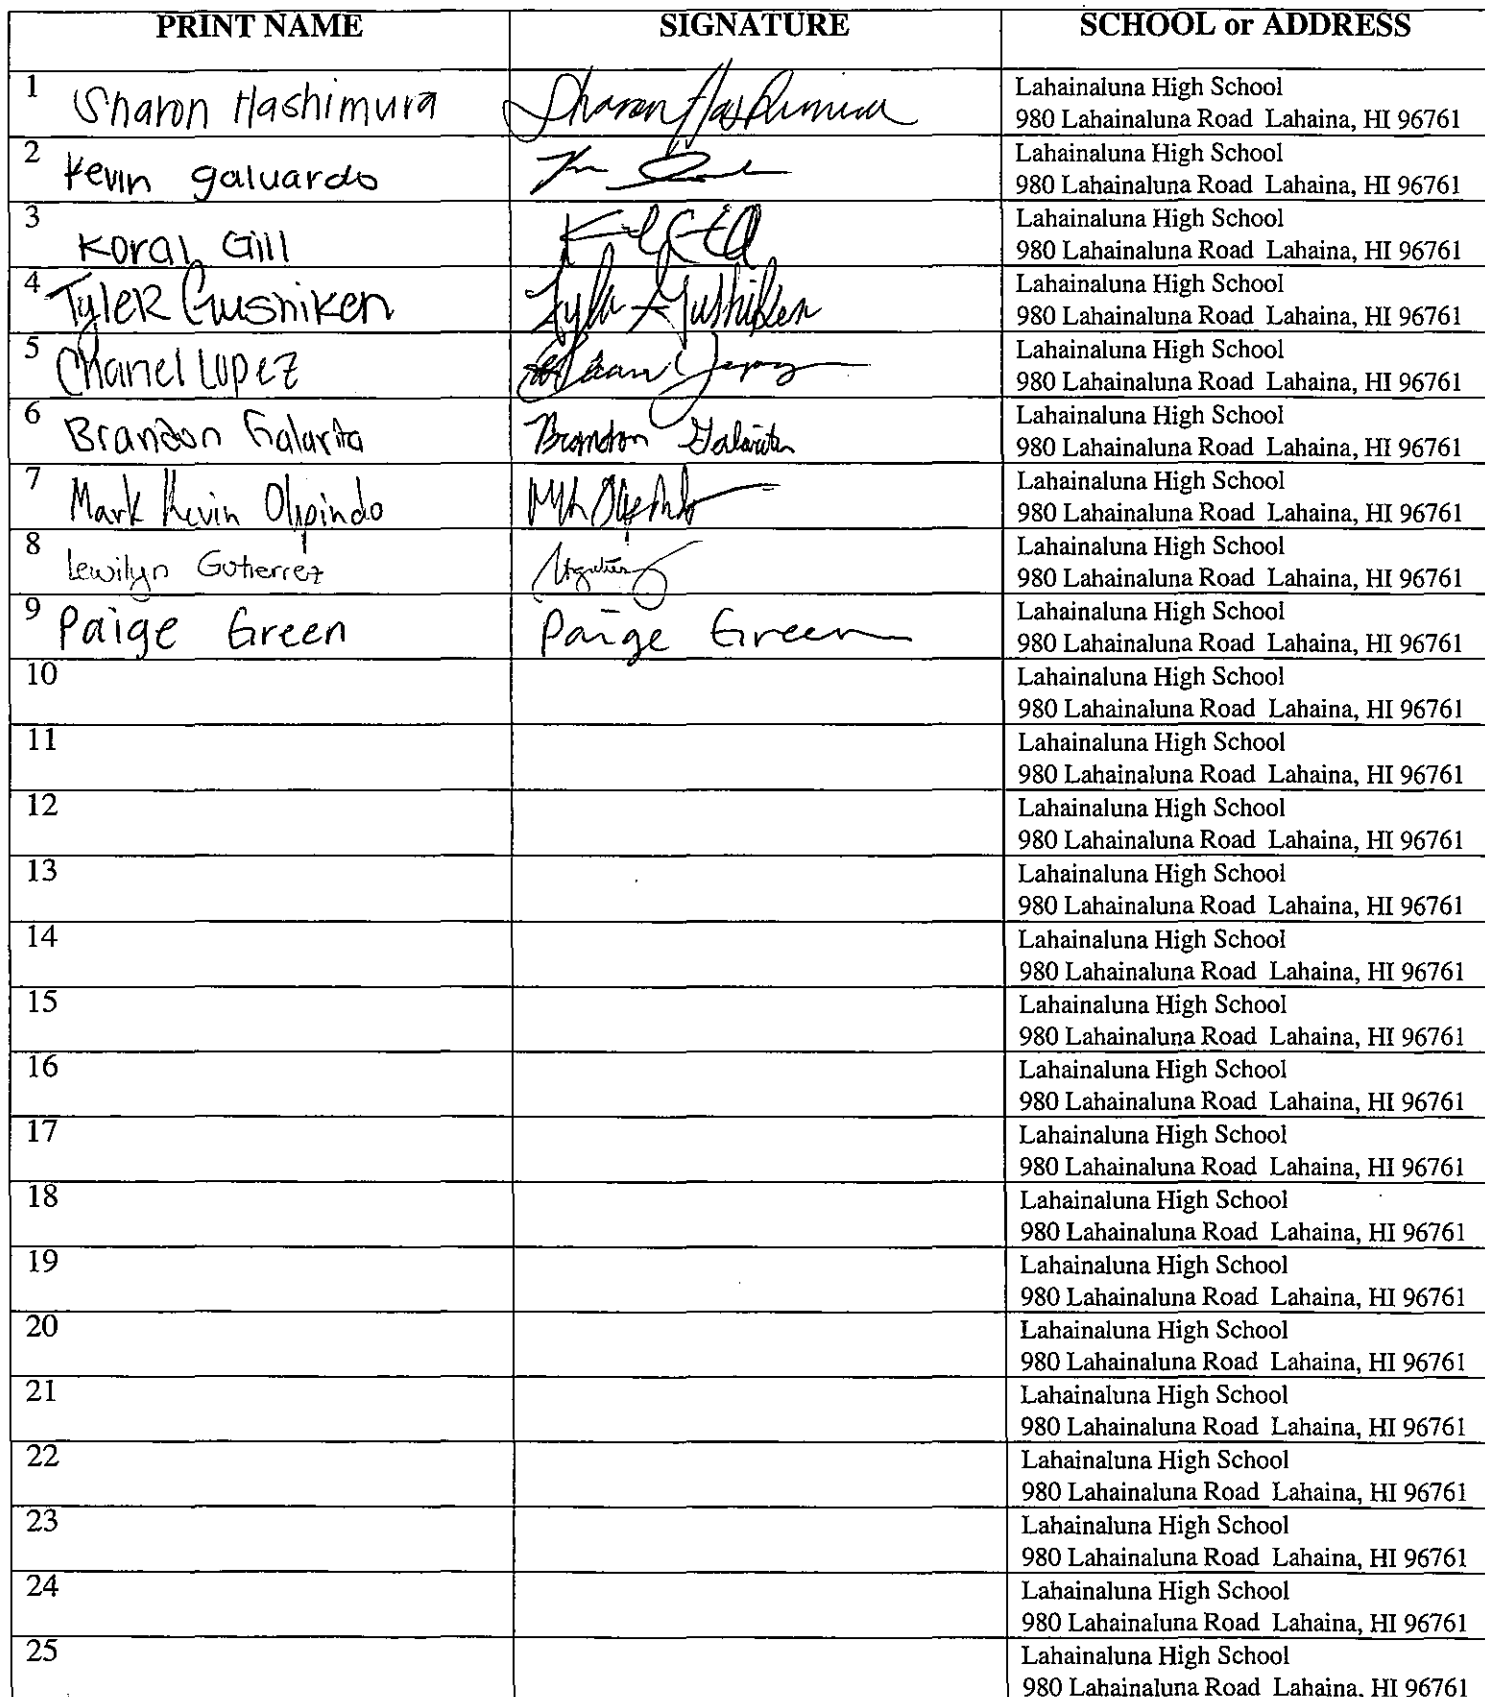 PRINT NAME SIGNATURE SCHOOL or ADDRESS
1 Sharon Hashimura Sharon Hashimura Lahainaluna High School
980 Lahainaluna Road Lahaina, HI 96761
2 Kevin galuardo Lahainaluna High School
980 Lahainaluna Road Lahaina, HI 96761
3 Koral Gill Lahainaluna High School
980 Lahainaluna Road Lahaina, HI 96761
4 Tyler Gushiken Tyler Gushiken Lahainaluna High School
980 Lahainaluna Road Lahaina, HI 96761
5 Chanel Lopez Lahainaluna High School
980 Lahainaluna Road Lahaina, HI 96761
6 Brandon Galarita Brandon Galarita Lahainaluna High School
980 Lahainaluna Road Lahaina, HI 96761
7 Mark Kevin Olpindo Lahainaluna High School
980 Lahainaluna Road Lahaina, HI 96761
8 Lewilyn Gutierrez Lahainaluna High School
980 Lahainaluna Road Lahaina, HI 96761
9 Paige Green Paige Green Lahainaluna High School
980 Lahainaluna Road Lahaina, HI 96761
10 Lahainaluna High School
980 Lahainaluna Road Lahaina, HI 96761
11 Lahainaluna High School
980 Lahainaluna Road Lahaina, HI 96761
12 Lahainaluna High School
980 Lahainaluna Road Lahaina, HI 96761
13 Lahainaluna High School
980 Lahainaluna Road Lahaina, HI 96761
14 Lahainaluna High School
980 Lahainaluna Road Lahaina, HI 96761
15 Lahainaluna High School
980 Lahainaluna Road Lahaina, HI 96761
16 Lahainaluna High School
980 Lahainaluna Road Lahaina, HI 96761
17 Lahainaluna High School
980 Lahainaluna Road Lahaina, HI 96761
18 Lahainaluna High School
980 Lahainaluna Road Lahaina, HI 96761
19 Lahainaluna High School
980 Lahainaluna Road Lahaina, HI 96761
20 Lahainaluna High School
980 Lahainaluna Road Lahaina, HI 96761
21 Lahainaluna High School
980 Lahainaluna Road Lahaina, HI 96761
22 Lahainaluna High School
980 Lahainaluna Road Lahaina, HI 96761
23 Lahainaluna High School
980 Lahainaluna Road Lahaina, HI 96761
24 Lahainaluna High School
980 Lahainaluna Road Lahaina, HI 96761
25 Lahainaluna High School
980 Lahainaluna Road Lahaina, HI 96761